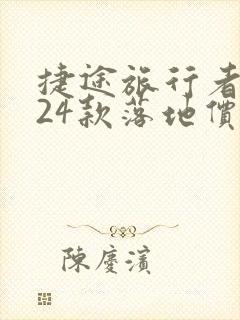 捷途旅行者
24款落地價
陳慶濱